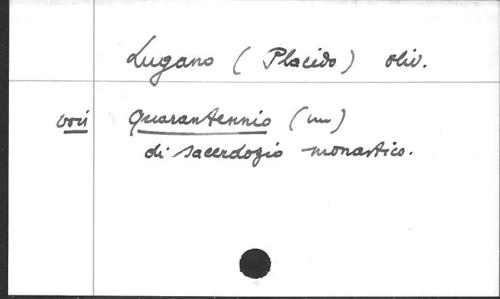 Lugano (Placido) oliv.
voir Quarantennio (un)
di sacerdozio monastico.